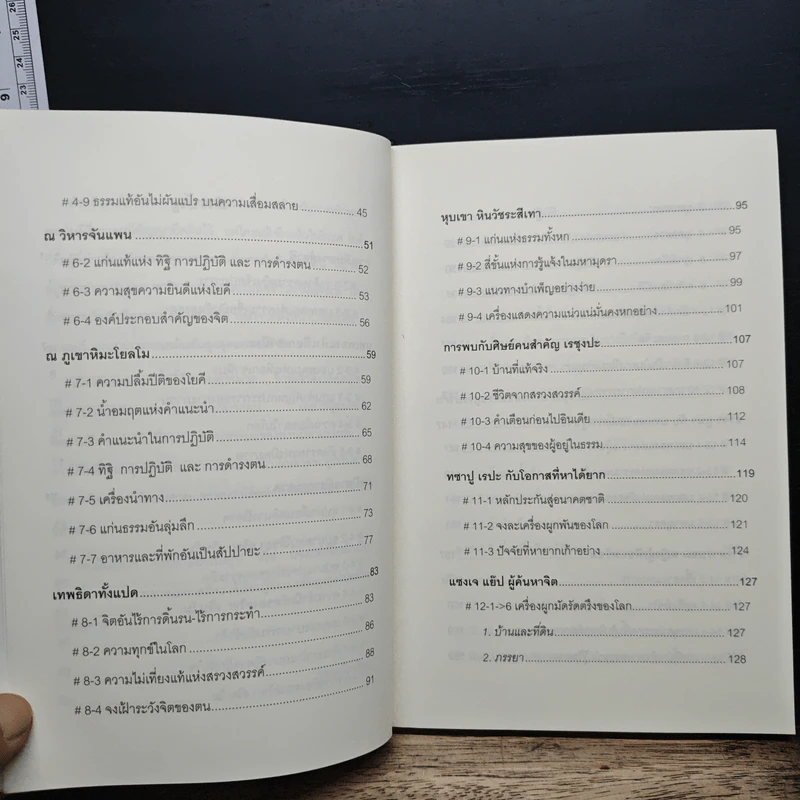 # 4-9 ธรรมแท้อันไม่ผันแปร บนความเสื่อมสลาย ................... 45
ณ วิหารจันแพน ................... 51
# 6-2 แก่นแท้แห่ง ทิฐิ การปฏิบัติ และ การดำรงตน ................... 52
# 6-3 ความสุขความยินดีแห่งโยคี ................... 53
# 6-4 องค์ประกอบสำคัญของจิต ................... 56
ณ ภูเขาหิมะโยลโม ................... 59
# 7-1 ความปลื้มปีติของโยคี ................... 59
# 7-2 น้ำอมฤตแห่งคำแนะนำ ................... 62
# 7-3 คำแนะนำในการปฏิบัติ ................... 65
# 7-4 ทิฐิ การปฏิบัติ และ การดำรงตน ................... 68
# 7-5 เครื่องนำทาง ................... 71
# 7-6 แก่นธรรมอันลุ่มลึก ................... 73
# 7-7 อาหารและที่พักอันเป็นสัปปายะ ................... 77
เทพธิดาทั้งแปด ................... 83
# 8-1 จิตอันไร้การดิ้นรน-ไร้การกระทำ ................... 83
# 8-2 ความทุกข์ในโลก ................... 86
# 8-3 ความไม่เที่ยงแท้แห่งสรวงสวรรค์ ................... 88
# 8-4 จงเฝ้าระวังจิตของตน ................... 91
หุบเขา หินวัชระสีเทา ................... 95
# 9-1 แก่นแห่งธรรมทั้งหก ................... 95
# 9-2 สี่ขั้นแห่งการรู้แจ้งในมหามุดรา ................... 97
# 9-3 แนวทางบำเพ็ญอย่างง่าย ................... 99
# 9-4 เครื่องแสดงความแน่วแน่มั่นคงหกอย่าง ................... 101
การพบกับศิษย์คนสำคัญ เรชุงปะ ................... 107
# 10-1 บ้านที่แท้จริง ................... 107
# 10-2 ชีวิตจากสรวงสวรรค์ ................... 108
# 10-3 คำเตือนก่อนไปอินเดีย ................... 112
# 10-4 ความสุขของผู้อยู่ในธรรม ................... 114
ทซาปู เรปะ กับโอกาสที่หาได้ยาก ................... 119
# 11-1 หลักประกันสู่อนาคตชาติ ................... 120
# 11-2 จงละเครื่องผูกพันของโลก ................... 121
# 11-3 ปัจจัยที่หายากเก้าอย่าง ................... 124
แซงเจ แย๊ป ผู้ค้นหาจิต ................... 127
# 12-1->6 เครื่องผูกมัดรัดตรึงของโลก ................... 127
1. บ้านและที่ดิน ................... 127
2. ภรรยา ................... 128
9
23
24
25